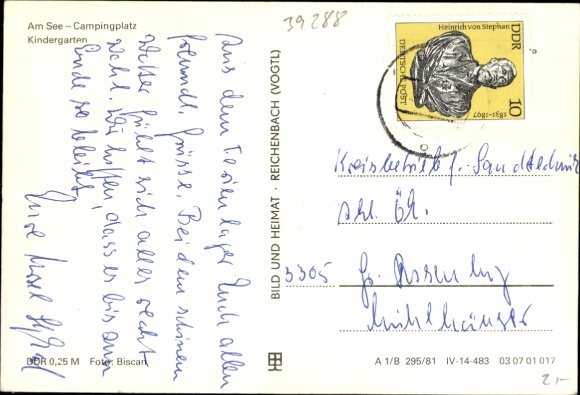 Am See – Campingplatz
Kindergarten
39288
Aus dem Ferienlager Euch allen
freundl. Grüsse. Bei dem schönen
Wetter fühlt sich alles recht
wohl. Wir hoffen, dass es bis zum
Ende so bleibt.
Eure
DDR 0,25 M Foto: Biscan
BILD UND HEIMAT · REICHENBACH (VOGTL)
Heinrich von Stephan
DDR
DEUTSCHE POST
1831-1897
10
Kreisbetrieb f. Landtechnik
Abt. ÖA.
3305 Gr. Rosenburg
A 1/B 295/81 IV-14-483 03 07 01 017
2,-